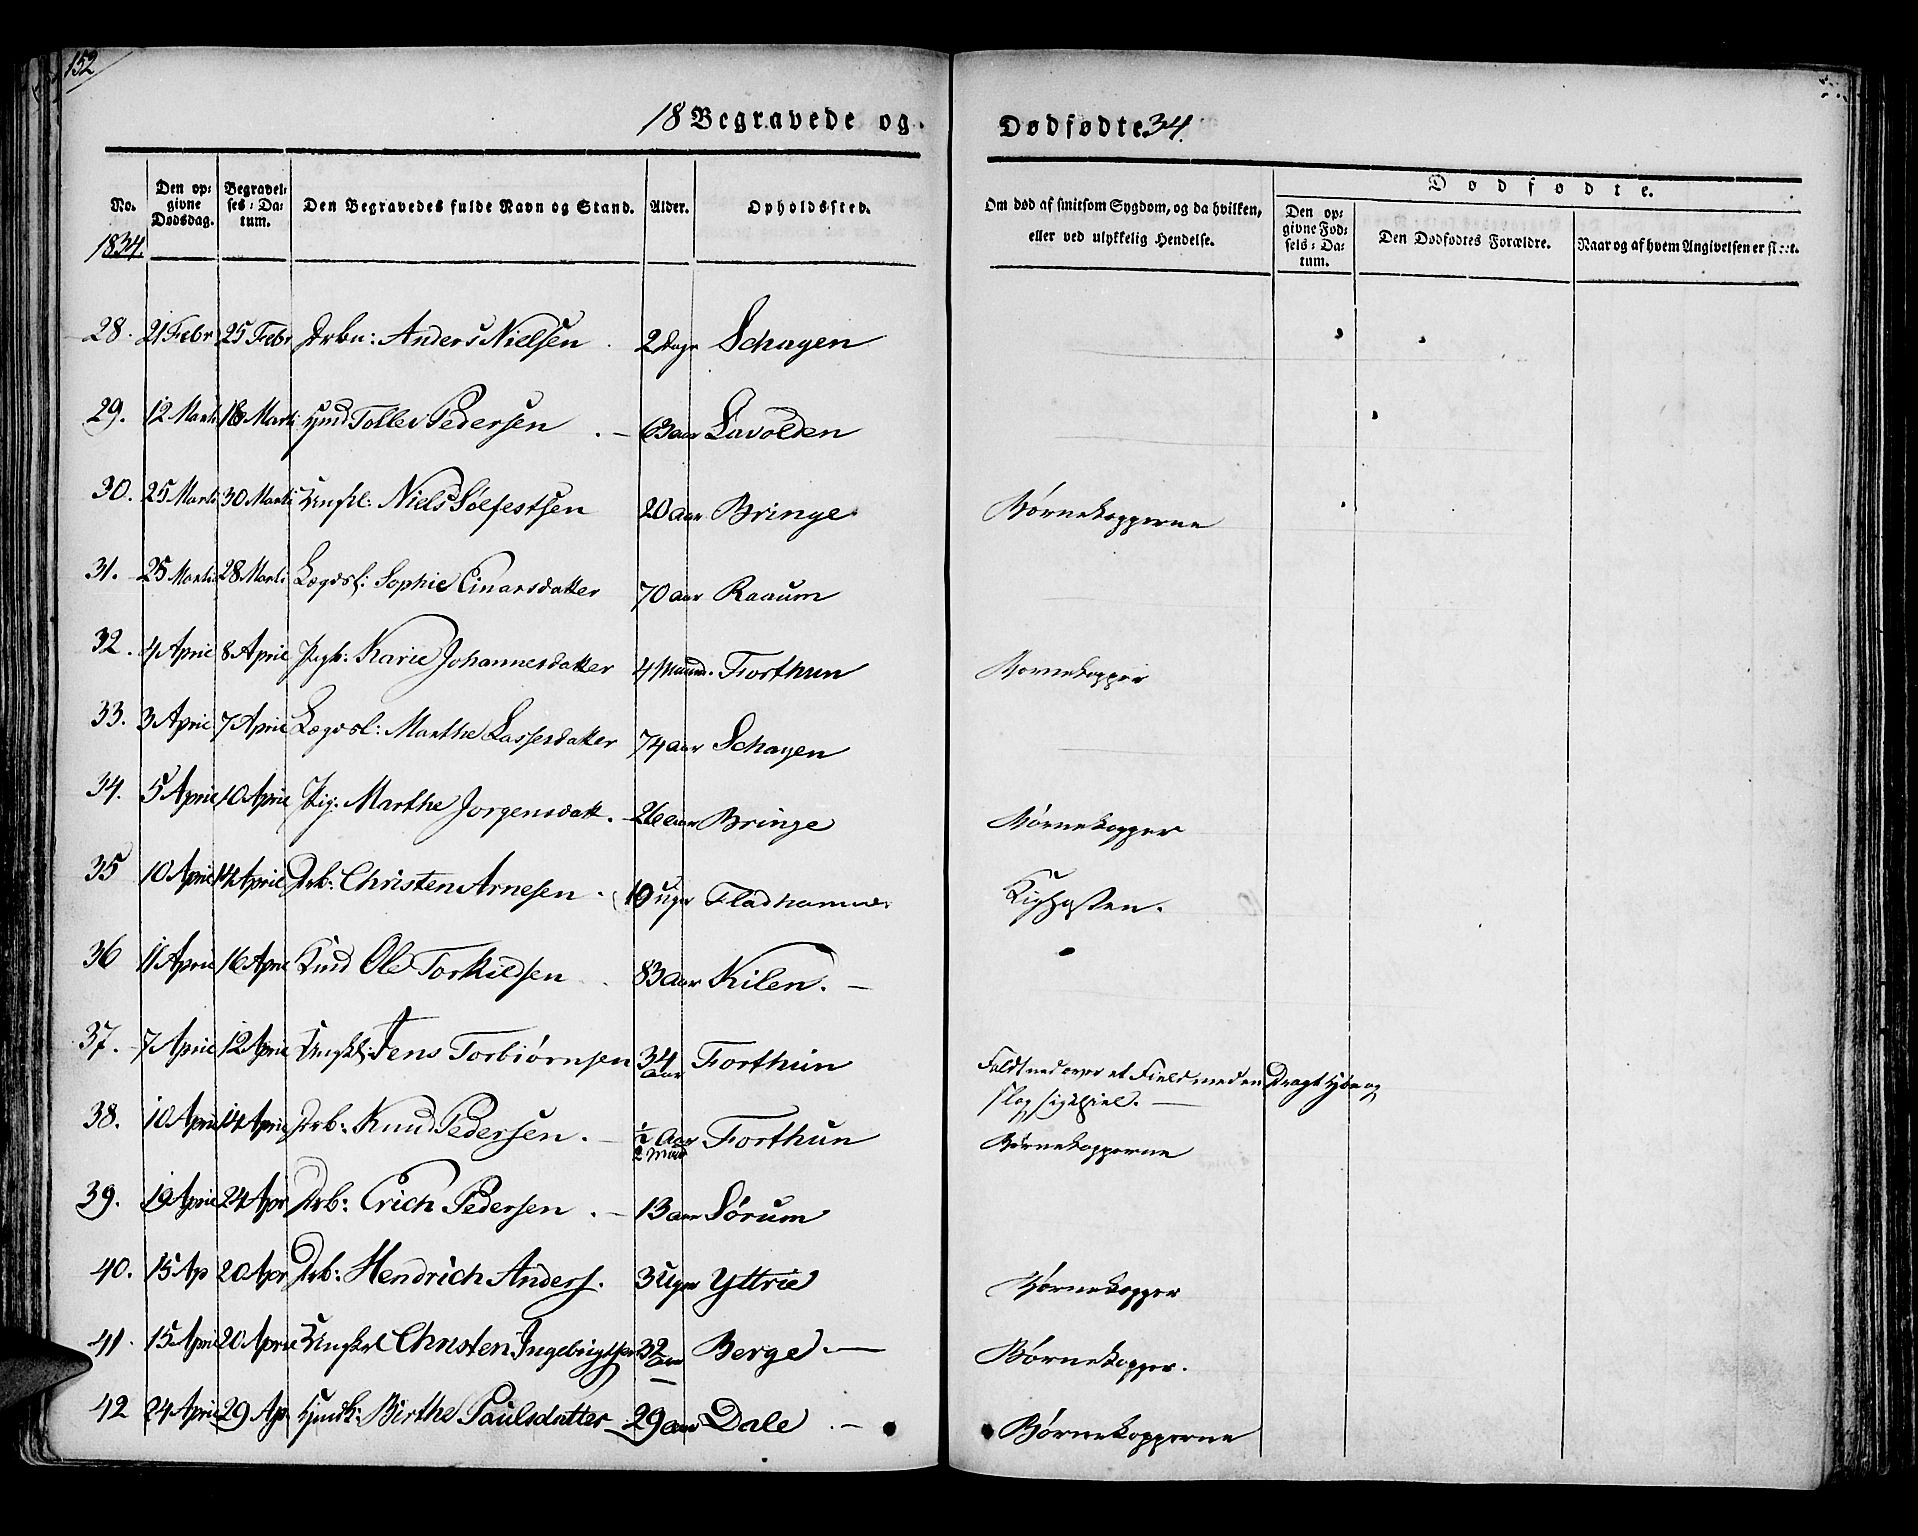 152
18 Begravede og Dødfødte 34.
No.
Den opgivne Dødsdag.
Begravelses-Datum.
Den Begravedes fulde Navn og Stand.
Alder.
Opholdssted.
Om død af smitsom Sygdom, og da hvilken, eller ved ulykkelig Hendelse.
Dødfødte.
Den opgivne Fødsels-Datum.
Den Dødfødtes Forældre.
Naar og af hvem Angivelsen er skeet.
1834.
28. 21 Febr 25 Febr Drbn: Anders Nielsen 2 Dage Schagen
29. 12 Marti 18 Marti Hmd Tollev Pedersen 63 aar Lavolden
30. 25 Marti 30 Marti Ungkl: Niels Sølfestsen 20 aar Bringe Børnekopperne
31. 25 Marti 28 Marti Lægdsl: Sophie Einarsdatter 70 aar Raaum
32. 4 April 8 April Pigb: Karie Johannesdatter 4 Maaned. Forthun Børnekopper
33. 3 April 7 April Lægdsl: Marthe Lassesdatter 74 aar Schagen
34. 5 April 10 April Pig: Marthe Jørgensdatt. 26 aar Bringe Børnekopper
35 10 April 14 April Drb: Christen Arnesen 10 Uger Fladhammer Kighosten.
36 11 April 16 April Ole Torkildsen 83 aar Kilen.
37. 7 April 12 April Ungkl: Jens Torbiørnsen 34 aar Forthun Faldt ned over et Field med en Dragt Høe og
slog sig ihiel.
38. 10 April 14 April Drb: Knud Pedersen. 1/2 aar 2 Maad Forthun Børnekopperne
39. 19 April 24 Apr Drb: Erich Pedersen. 13 aar Sørum
40. 15 Ap 20 Apr Drb: Hendrich Anders. 3 Uger Yttrie Børnekopper
41. 15 April 20 April Ungkrl Christen Ingebrigtsen 32 aar Berge Børnekopper.
42 24 April 29 Ap Hmdk: Birthe Paulsdatter 29 aar Dale Børnekopperne